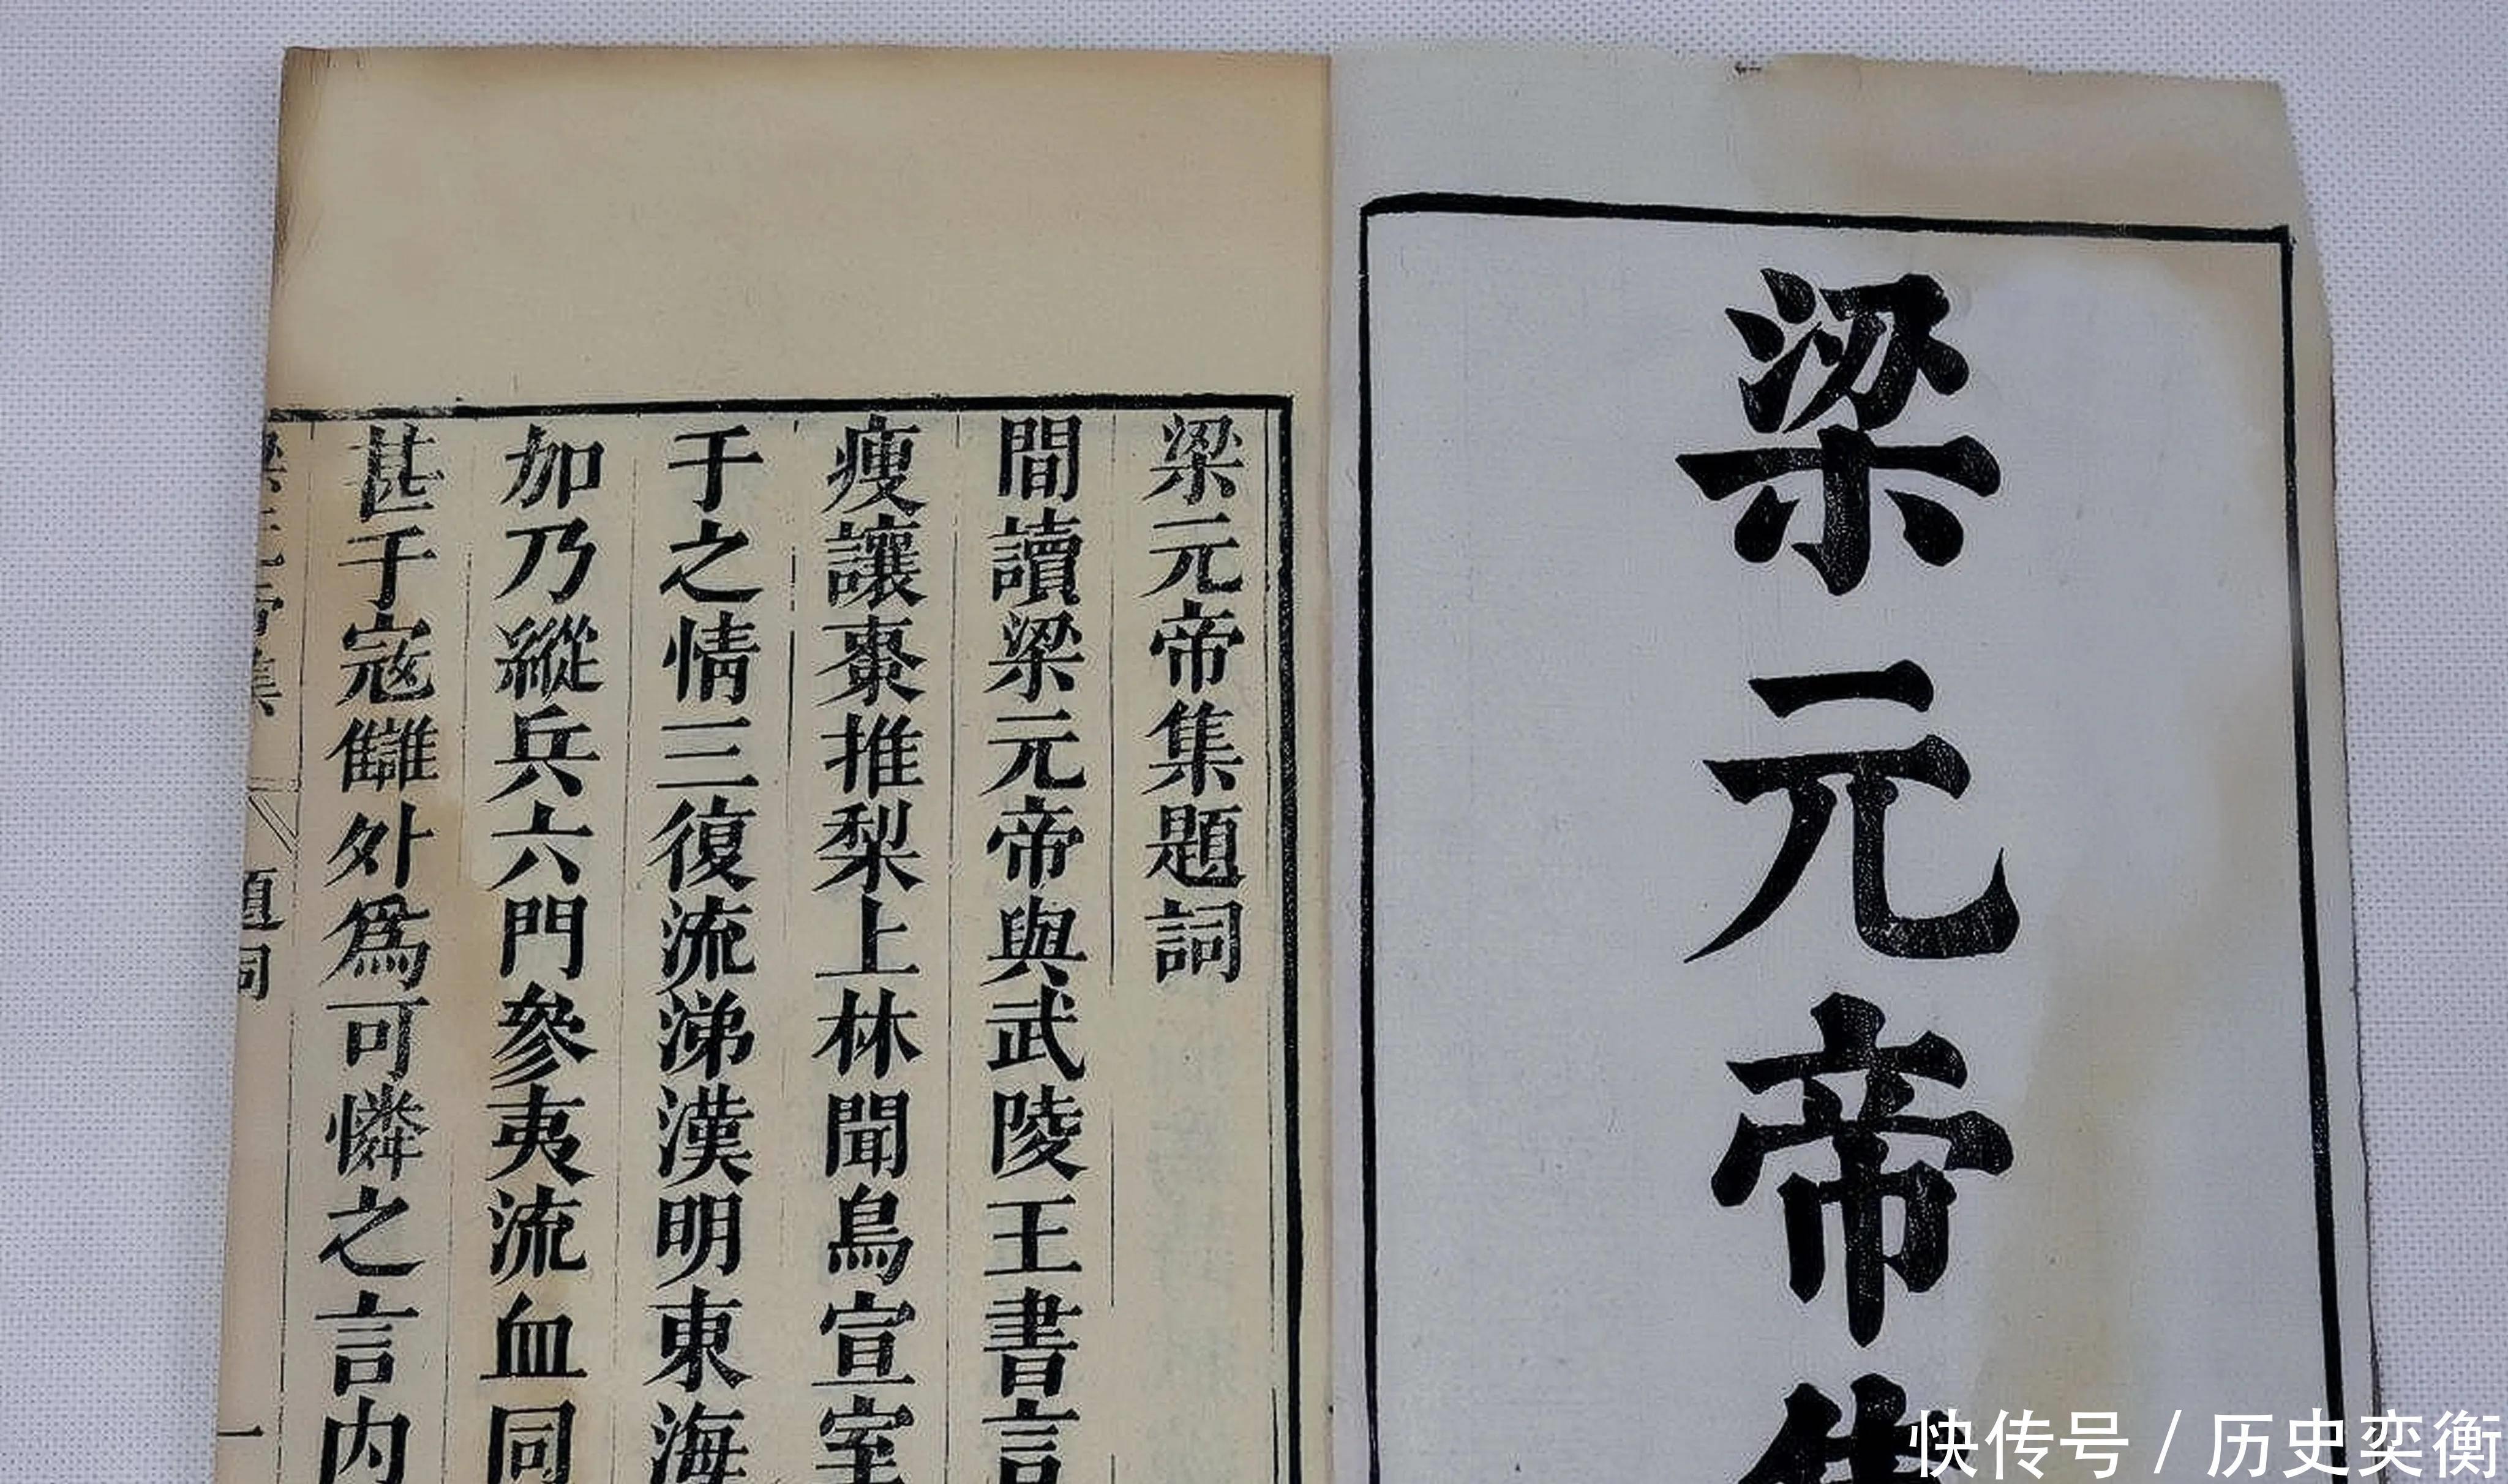 梁元帝集
梁元帝集題詞
間讀梁元帝與武陵王書言
瘦讓棗推梨上林聞鳥宣室
于之情三復流涕漢明東海
加乃縱兵六門參夷流血同
甚于寇讎外爲可憐之言内
梁元帝集
題詞
一
快传号/历史奕衡